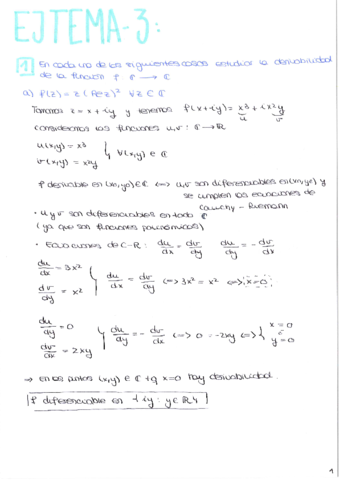 EJTEMA-3:
1 En cada uno de los siguientes casos estudiar la derivabilidad
de la función f: ℂ → ℂ
a) f(z) = z (Re z)² ∀z ∈ ℂ
Tomamos z = x + iy y tenemos f(x+iy) = x³ + ix²y
u v
consideramos las funciones u, v: ℂ → ℝ
u(x,y) = x³
v(x,y) = x²y } ∀(x,y) ∈ ℂ
f derivable en (x₀,y₀) ∈ ℂ ⟺ u, v son diferenciables en (x₀,y₀) y
se cumplen las ecuaciones de
Cauchy - Riemann
• u y v son diferenciables en todo ℂ
(ya que son funciones polinómicas)
• Ecuaciones de C-R: du/dx = dv/dy du/dy = - dv/dx
du/dx = 3x²
dv/dy = x² } du/dx = dv/dy ⟺ 3x² = x² ⟺ x = 0
du/dy = 0
dv/dx = 2xy } du/dy = - dv/dx ⟺ 0 = -2xy ⟺ { x = 0 ó y = 0
⇒ en los puntos (x,y) ∈ ℂ tq x=0 hay derivabilidad.
f diferenciable en {iy : y ∈ ℝ}
1